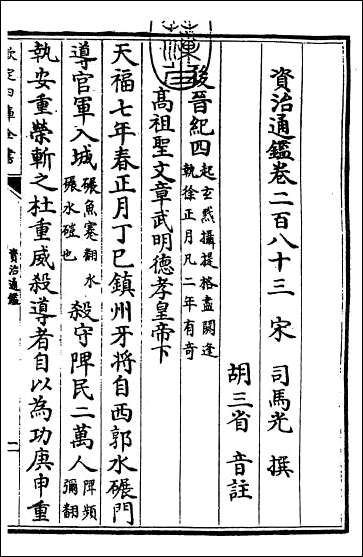 資治通鑑卷二百八十三 宋 司馬光 撰
胡三省 音註
後晉紀四 起玄黓攝提格盡閼逢執徐正月凡二年有奇
高祖聖文章武明德孝皇帝下
天福七年春正月丁巳鎮州牙將自西郭水碾門
導官軍入城 碾魚蹇翻水碾水磑也 殺守陴民二萬人 陴頻彌翻
執安重榮斬之杜重威殺導者自以為功庚申重
欽定四庫全書
資治通鑑